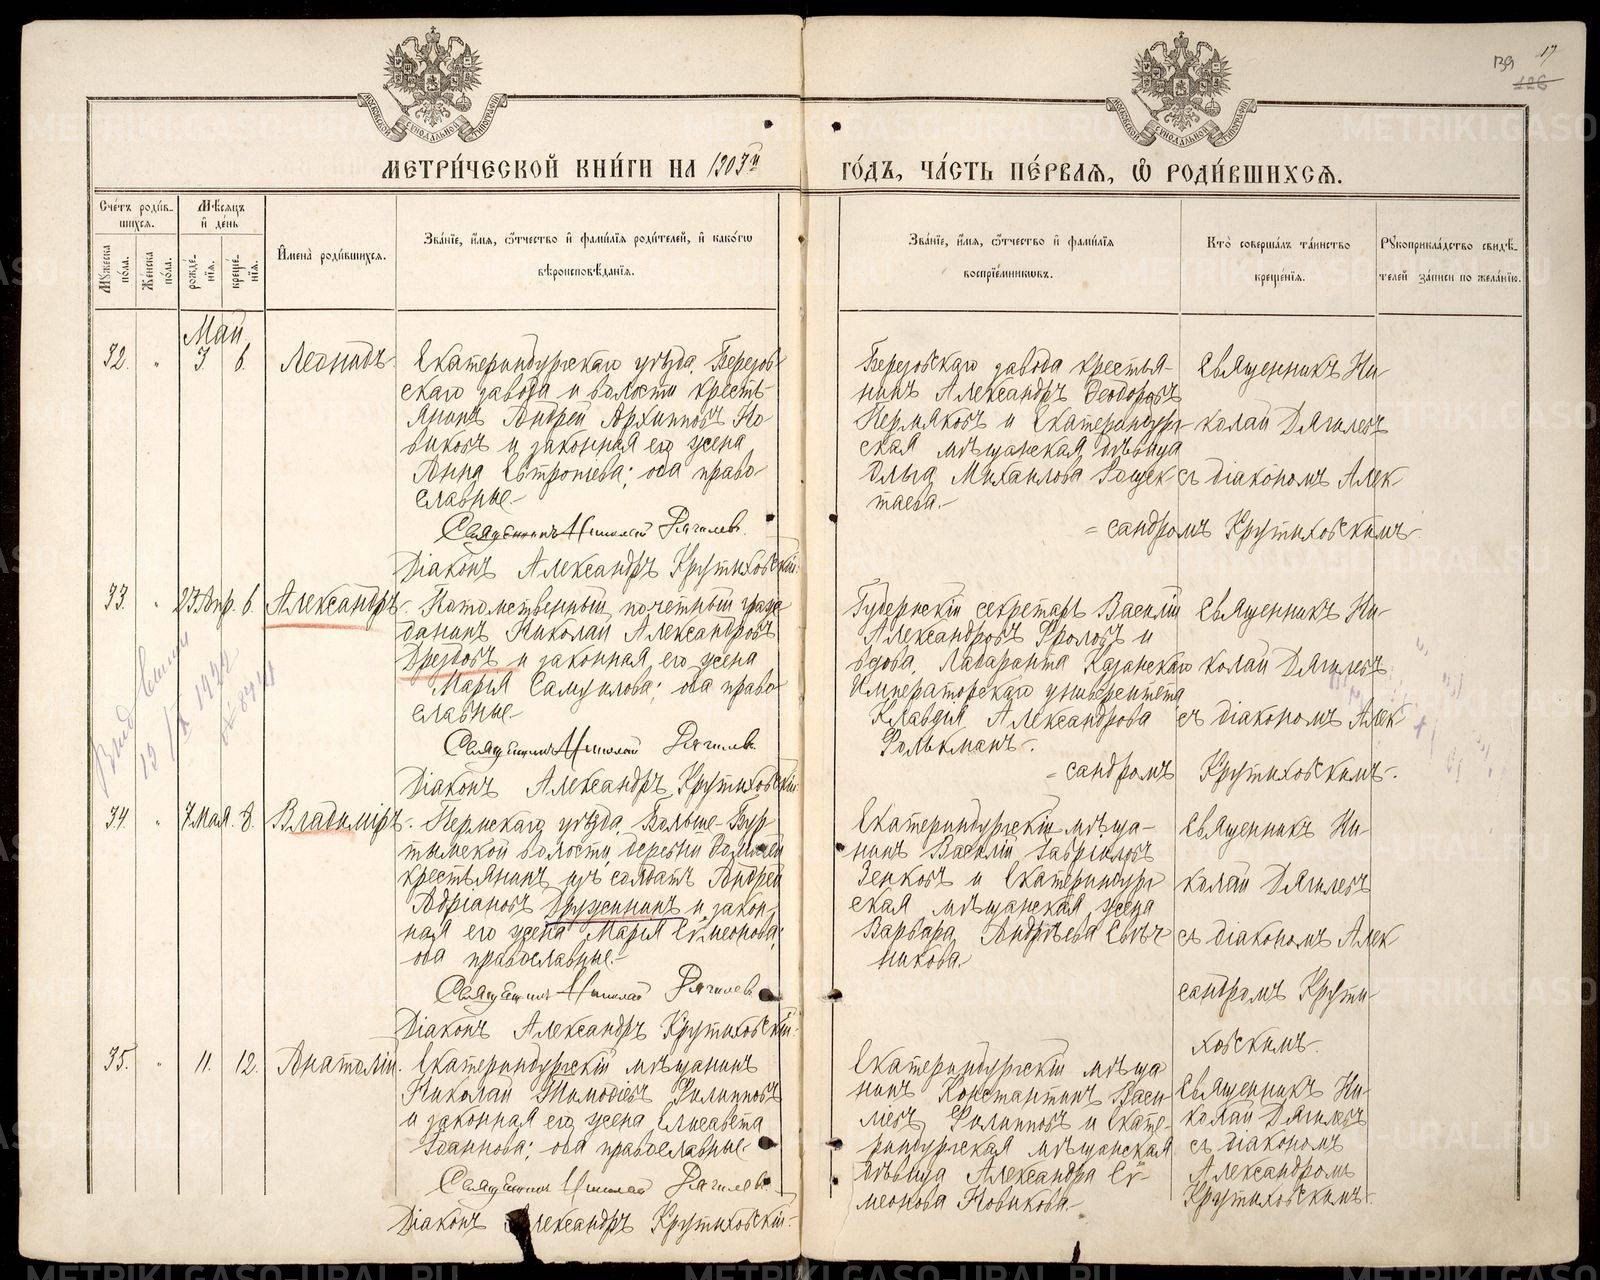 17
МЕТРИ́ЧЕСКОЙ КНИ́ГИ НА 1903й ГО́ДЪ, ЧА́СТЬ ПЕ́РВАѦ, Ѡ҆ РОДИ́ВШИХСѦ.
Сче́тъ роди́в-
шихсѧ.
Мѣсѧцъ
и҆ де́нь
Мꙋжеска по́ла.
Же́нска по́ла.
рожде́-нїѧ.
креще́-нїѧ.
И҆мена̀ роди́вшихсѧ.
Зва́нїе, и҆́мѧ, ѻ҆́тчество и҆ фами́лїѧ роди́телей, и҆ како́гѡ
вѣроисповѣ́данїѧ.
Зва́нїе, и҆́мѧ, ѻ҆́тчество и҆ фами́лїѧ
воспрїе́мникѡвъ.
Кто̀ соверша́лъ та́инство
креще́нїѧ.
Рꙋкоприкла́дство свидѣ́-
телей за́писи по жела́нїю.
Май
32. " 3 6. Леонидъ.
Екатеринбургскаго уѣзда, Березов-
скаго завода и волости кресть-
янинъ Андрей Архиповъ Но-
виковъ и законная его жена
Анна Евтропiева; оба право-
славные.-
Священникъ Николай Дягилевъ.
Дiаконъ Александръ Крутиховскiй.
Березовскаго завода крестья-
нинъ Александръ Ѳеодоровъ
Пермяковъ и Екатеринбург-
ская мѣщанская дѣвица
Ольга Михаилова
таева.-
Священникъ Ни-
колай Дягилевъ
съ дiакономъ Алек-
=сандромъ Крутиховскимъ.-
33. " 23 Апр. 6. Александръ.
Потомственный почетный граж-
данинъ Николай Александровъ
Дрездовъ и законная его жена
Марiя Самуилова; оба право-
славные.-
Священникъ Николай Дягилевъ.
Дiаконъ Александръ Крутиховскiй.
Губернскiй секретарь Василiй
Александровъ Фроловъ и
вдова Лаборанта Казанскаго
Императорскаго университета
Клавдiя Александрова
Фолькманъ.-
Священникъ Ни-
колай Дягилевъ
съ дiакономъ Алек-
=сандромъ Крутиховскимъ.-
34. " 7 Мая. 8. Владимiръ.
Пермскаго уѣзда, Больше-Бур-
тымской волости, деревни
крестьянинъ изъ солдатъ Андрей
Адрiановъ Дружининъ и закон-
ная его жена Марiя Сѵмеонова;
оба православные.-
Священникъ Николай Дягилевъ
Дiаконъ Александръ Крутиховскiй.
Екатеринбургскiй мѣща-
нинъ Василiй Гаврiиловъ
Зенковъ и Екатеринбург-
ская мѣщанская жена
Варвара Андреева Свѣч-
никова.-
Священникъ Ни-
колай Дягилевъ
съ дiакономъ Алек-
сандромъ Крути-
ховскимъ.-
35. " 11. 12. Анатолiй.
Екатеринбургскiй мѣщанинъ
Николай Тимоѳiевъ Филипповъ
и законная его жена Елисавета
Iоаннова; оба православные.-
Священникъ Николай Дягилевъ.
Дiаконъ Александръ Крутиховскiй.-
Екатеринбургскiй мѣща-
нинъ Константинъ Васи-
лiевъ Филипповъ и Екате-
ринбургская мѣщанская
дѣвица Александра Сѵ-
меонова Новикова.-
Священникъ Ни-
колай Дягилевъ
съ дiакономъ
Александромъ
Крутиховскимъ.-
METRIKI.GASO-URAL.RU